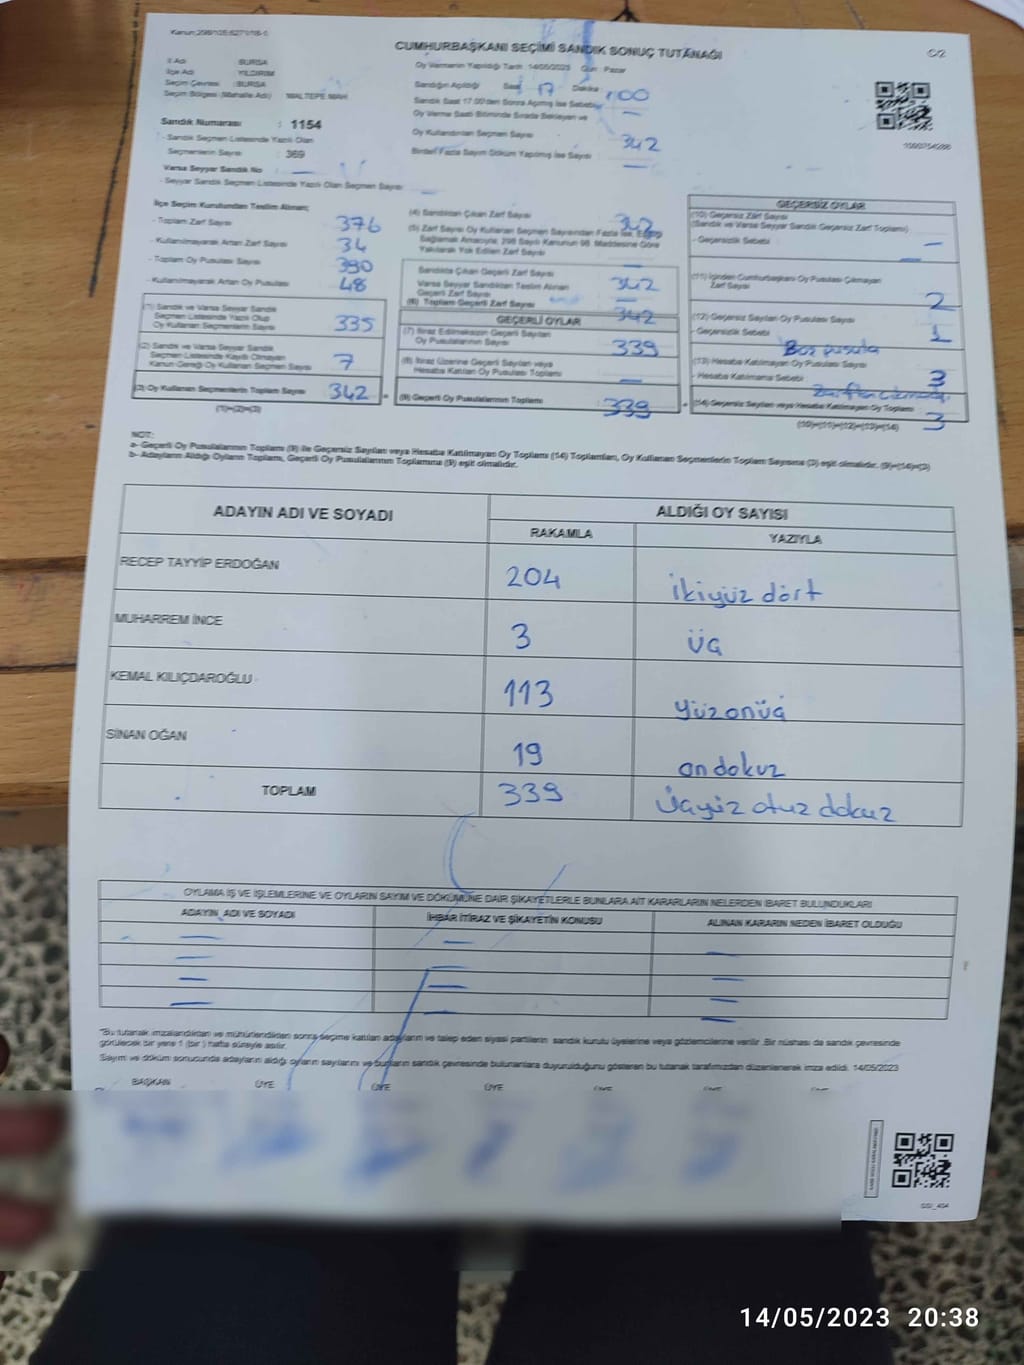 Kanun 298/105 6271/18-1
CUMHURBAŞKANI SEÇİMİ SANDIK SONUÇ TUTANAĞI
C/2
İl Adı : BURSA
İlçe Adı : YILDIRIM
Seçim Çevresi : BURSA
Seçim Bölgesi (Mahalle Adı) : MALTEPE MAH.
Oy Vermenin Yapıldığı Tarih 14/05/2023 Gün Pazar
Sandığın Açıldığı Saat 17 Dakika :00
Sandık Saat 17:00'den Sonra Açılmış İse Sebebi —
Oy Verme Saati Bitiminde Sırada Bekleyen ve
Oy Kullandırılan Seçmen Sayısı 342
Birden Fazla Sayım Döküm Yapılmış İse Sayısı —
Sandık Numarası : 1154
- Sandık Seçmen Listesinde Yazılı Olan
Seçmenlerin Sayısı : 369
Varsa Seyyar Sandık No : —
- Seyyar Sandık Seçmen Listesinde Yazılı Olan Seçmen Sayısı : —
İlçe Seçim Kurulundan Teslim Alınan;
- Toplam Zarf Sayısı 376
- Kullanılmayarak Artan Zarf Sayısı 34
- Toplam Oy Pusulası Sayısı 390
- Kullanılmayarak Artan Oy Pusulası 48
(1) Sandık ve Varsa Seyyar Sandık
Seçmen Listesinde Yazılı Olup
Oy Kullanan Seçmenlerin Sayısı 335
(2) Sandık ve Varsa Seyyar Sandık
Seçmen Listesinde Kayıtlı Olmayan
Kanun Gereği Oy Kullanan Seçmen Sayısı 7
(3) Oy Kullanan Seçmenlerin Toplam Sayısı 342
(1)+(2)=(3)
(4) Sandıktan Çıkan Zarf Sayısı 342
(5) Zarf Sayısı Oy Kullanan Seçmen Sayısından Fazla İse, Eşitliği
Sağlamak Amacıyla; 298 Sayılı Kanunun 98. Maddesine Göre
Yakılarak Yok Edilen Zarf Sayısı
Sandıkta Çıkan Geçerli Zarf Sayısı 342
Varsa Seyyar Sandıktan Teslim Alınan
Geçerli Zarf Sayısı —
(6) Toplam Geçerli Zarf Sayısı 342
GEÇERLİ OYLAR
(7) İtiraz Edilmeksizin Geçerli Sayılan
Oy Pusulalarının Sayısı 339
(8) İtiraz Üzerine Geçerli Sayılan veya
Hesaba Katılan Oy Pusulası Toplamı —
(9) Geçerli Oy Pusulalarının Toplamı 339
GEÇERSİZ OYLAR
(10) Geçersiz Zarf Sayısı
(Sandık ve Varsa Seyyar Sandık Geçersiz Zarf Toplamı) —
- Geçersizlik Sebebi —
(11) İçinden Cumhurbaşkanı Oy Pusulası Çıkmayan
Zarf Sayısı 2
(12) Geçersiz Sayılan Oy Pusulası Sayısı 1
- Geçersizlik Sebebi Boş pusula
(13) Hesaba Katılmayan Oy Pusulası Sayısı 3
- Hesaba Katılmama Sebebi
(14) Geçersiz Sayılan veya Hesaba Katılmayan Oy Toplamı 3
(10)+(11)+(12)+(13)=(14)
NOT:
a- Geçerli Oy Pusulalarının Toplamı (9) ile Geçersiz Sayılan veya Hesaba Katılmayan Oy Toplamı (14) Toplamları, Oy Kullanan Seçmenlerin Toplam Sayısına (3) eşit olmalıdır. (9)+(14)=(3)
b- Adayların Aldığı Oyların Toplamı, Geçerli Oy Pusulalarının Toplamına (9) eşit olmalıdır.
ADAYIN ADI VE SOYADI ALDIĞI OY SAYISI
RAKAMLA YAZIYLA
RECEP TAYYİP ERDOĞAN 204 ikiyüz dört
MUHARREM İNCE 3 üç
KEMAL KILIÇDAROĞLU 113 yüzonüç
SİNAN OĞAN 19 on dokuz
TOPLAM 339 Üçyüz otuz dokuz
OYLAMA İŞ VE İŞLEMLERİNE VE OYLARIN SAYIM VE DÖKÜMÜNE DAİR ŞİKAYETLERLE BUNLARA AİT KARARLARIN NELERDEN İBARET BULUNDUKLARI
ADAYIN ADI VE SOYADI İHBAR İTİRAZ VE ŞİKAYETİN KONUSU ALINAN KARARIN NEDEN İBARET OLDUĞU
— — —
— — —
— — —
— — —
"Bu tutanak imzalandıktan ve mühürlendikten sonra seçime katılan adayların ve talep eden siyasi partilerin sandık kurulu üyelerine veya gözlemcilerine verilir. Bir nüshası da sandık çevresinde
görülecek bir yere 1 (bir) hafta süreyle asılır.
Sayım ve döküm sonucunda adayların aldığı oyların sayılarını ve bunların sandık çevresinde bulunanlara duyurulduğunu gösteren bu tutanak tarafımızdan düzenlenerek imza edildi. 14/05/2023
BAŞKAN ÜYE ÜYE ÜYE ÜYE ÜYE
14/05/2023 20:38